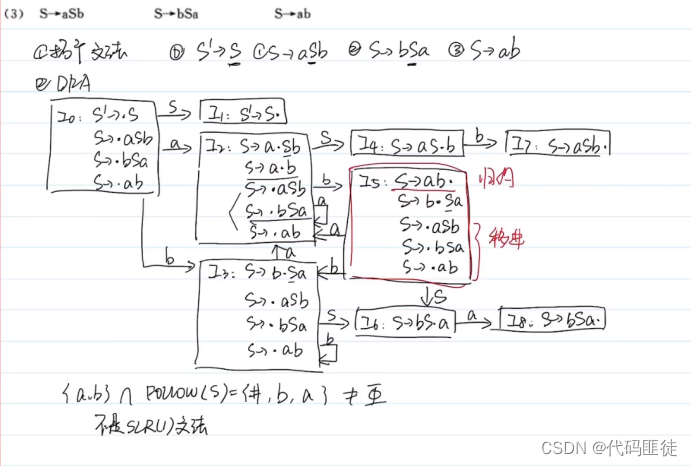 (3) S→aSb S→bSa S→ab
①拓广文法 ⓪ S'→S ①S→aSb ② S→bSa ③S→ab
② DFA
I0: S'→·S
S→·aSb
S→·bSa
S→·ab
S
I1: S'→S·
a
I2: S→a·Sb
S→a·b
S→·aSb
S→·bSa
S→·ab
S
I4: S→aS·b
b
I7: S→aSb·
b
a
a
I5: S→ab·
S→b·Sa
S→·aSb
S→·bSa
S→·ab
归约
移进
b
a
b
S
I3: S→b·Sa
S→·aSb
S→·bSa
S→·ab
S
b
I6: S→bS·a
a
I8: S→bSa·
{a,b} ∩ FOLLOW(S)={#,b,a} ≠ Φ
不是SLR(1)文法
CSDN @代码匪徒